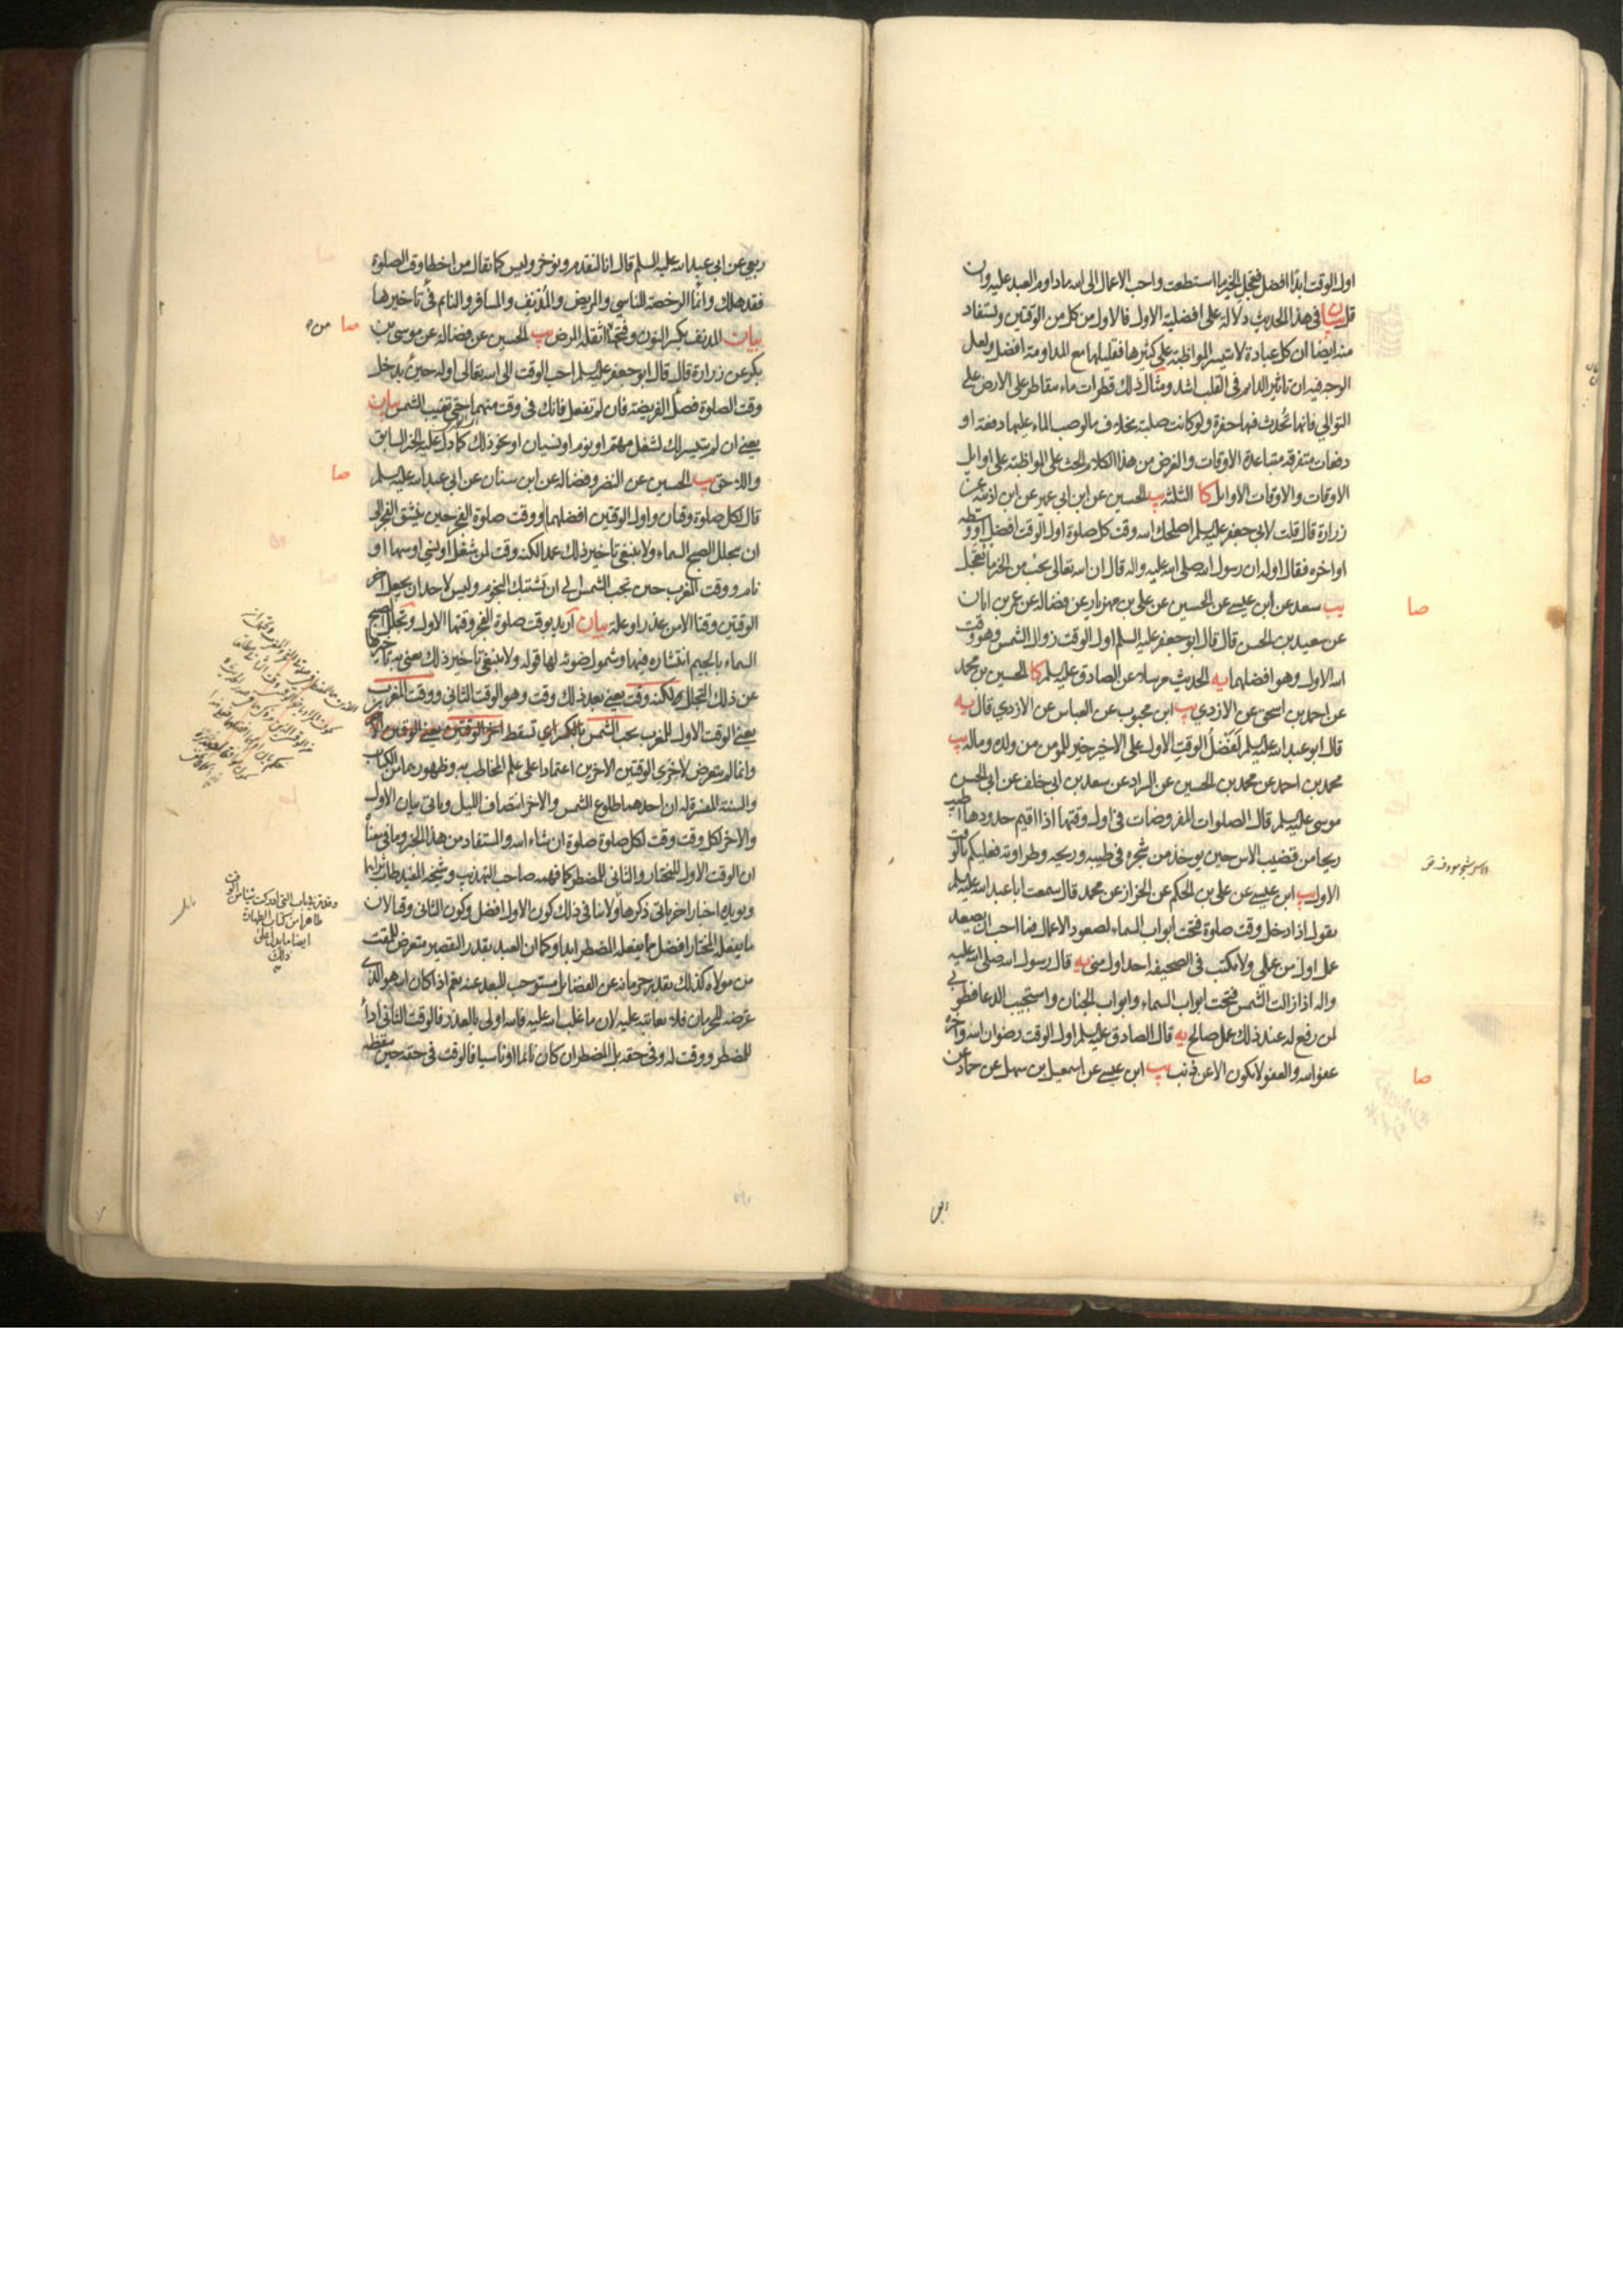 اول الوقت ابدًا افضل فتعجل الخير ما استطعت واحب الاعمال الى الله ما داوم العبد عليه وان
قل بيان في هذا الحديث دلالة على افضلية الاول فالاول من كل من الوقتين ويستفاد
منه ايضًا ان كل عبادة لا تتيسر المواظبة على كثيرها فقليلها مع المداومة افضل ولعل
الوجه فيه ان تاثير الدايم في القلب اشد ومثال ذلك قطرات ماء سقاطر على الارض على
التوالي فانها تُحدث فيها حفرة ولو كانت صلبة بخلاف ما لو صب الماء عليها دفعة او
دفعات متفرقة متباعدة الاوقات والغرض من هذا الكلام الحث على المواظبة على اوايل
الاوقات والاوقات الاوايل كا الثلثة يب الحسين عن ابن ابي عمير عن ابن اذينة عن
زرارة قال قلت لابي جعفر عليه السلم اصلحك الله وقت كل صلوة اول الوقت افضل او وسطه
او اخره فقال اوله ان رسول الله صلى الله عليه واله قال ان الله تعالى يحب من الخير ما يعجل
يب سعد عن ابن عيسى عن الحسين عن علي بن مهزيار عن فضالة عن عمر بن ابان
عن سعيد بن الحسن قال قال ابو جعفر عليه السلم اول الوقت زوال الشمس وهو وقت
الله الاول وهو افضلهما يه الحديث مرسلا عن الصادق عليه السلم كا الحسين بن محمد
عن احمد بن اسحق عن الازدي يب ابن محبوب عن العباس عن الازدي قال يه
قال ابو عبد الله عليه السلم لَفضلُ الوقت الاول على الاخير خير للمومن من ولده وماله يب
محمد بن احمد عن محمد بن الحسين عن السراد عن سعد بن ابي خلف عن ابي الحسن
موسى عليه السلم قال الصلوات المفروضات في اول وقتها اذا اقيم حدودها اطيب
ريحا من قضيب الاس حين يوخذ من شجره في طيبه وريحه وطراوته فعليكم بالوقت
الاول يب ابن عيسى عن علي بن الحكم عن الخزاز عن محمد قال سمعت ابا عبد الله عليه السلم
يقول اذا دخل وقت صلوة فتحت ابواب السماء لصعود الاعمال فما احب ان يصعد
عمل اول من عملي ولا يكتب في الصحيفة احد اول مني يه قال رسول الله صلى الله عليه
واله اذا زالت الشمس فتحت ابواب السماء وابواب الجنان واستجيب الدعا فطوبى
لمن رفع له عند ذلك عمل صالح يه قال الصادق عليه السلم اول الوقت رضوان الله واخره
عفو الله والعفو لا يكون الا عن ذنب يب ابن عيسى عن اسمعيل بن سهل عن حماد عن
صا
صا
ربعي عن ابي عبد الله عليه السلم قال انا لنقدم ونوخر وليس كما يقال من اخطا وقت الصلوة
فقد هلك وانما الرخصة للناسي والمريض والمُدنف والمسافر والنايم في تاخيرها
بيان المدنف بكسر النون وفتحها من اثقله المرض يب الحسين عن فضالة عن موسى بن
بكر عن زرارة قال قال ابو جعفر عليه السلم احب الوقت الى الله تعالى اوله حين يدخل
وقت الصلوة فصل الفريضة فان لم تفعل فانك في وقت منهما حتى تغيب الشمس بيان
يعني ان لم يتيسر لك لشغل مهم او نوم او نسيان او نحو ذلك كما دل عليه الخبر السابق
واللاحق يب الحسين عن النضر وفضالة عن ابن سنان عن ابي عبد الله عليه السلم
قال لكل صلوة وقتان واول الوقتين افضلهما ووقت صلوة الفجر حين ينشق الفجر الى
ان يتجلل الصبح السماء ولا ينبغي تاخير ذلك عمدا لكنه وقت لمن شغل او نسي او سها او
نام ووقت المغرب حين تجب الشمس الى ان تشتبك النجوم وليس لاحد ان يجعل اخر
الوقتين وقتا الا من عذر او علة بيان اريد بوقت صلوة الفجر وقتها الاول وتجلل الصبح
السماء بالجيم انتشاره فيها وشمول ضوئه لها قوله ولا ينبغي تاخير ذلك يعني به تاخيرها
عن ذلك التجلل ولكنه وقت يعني بعد ذلك وقت وهو الوقت الثاني ووقت المغرب
يعني الوقت الاول للمغرب تجب الشمس بالكسر اي تسقط اخر الوقتين يعني الوقتين
وانما لم يتعرض لاخرى الوقتين الاخرين اعتمادا على علم المخاطب به وظهورهما من الكتاب
والسنة المفسرة له ان احدهما طلوع الشمس والاخر انتصاف الليل وياتي بيان الاول
والاخر لكل وقت وقت لكل صلوة صلوة ان شاء الله والمستفاد من هذا الخبر وما في معناه
ان الوقت الاول للمختار والثاني للمضطر كما فهمه صاحب التهذيب وشيخه المفيد طاب ثراهما
ويويده اخبار اخر ياتي ذكرها ولا ينافي ذلك كون الاول افضل وكون الثاني وقتا لان
ما يفعله المختار افضل مما يفعله المضطر ابدا وكما ان العبد بقدر التقصير متعرض للمقت
من مولاه كذلك بقدر حرمانه عن الفضايل مستوجب للبعد عنه نعم اذا كان الله هو الذي
عرضه للحرمان فلا يعاتبه عليه لان ما غلب الله عليه فالله اولى بالعذر فالوقت الثاني اداء
للمضطر ووقت له وفي حقه بل المضطر ان كان نائما او ناسيا فالوقت في حقه حين يقظه
صا
صا
طاهرا من كتاب الطهارة
ايضا ما يدل على
ذلك